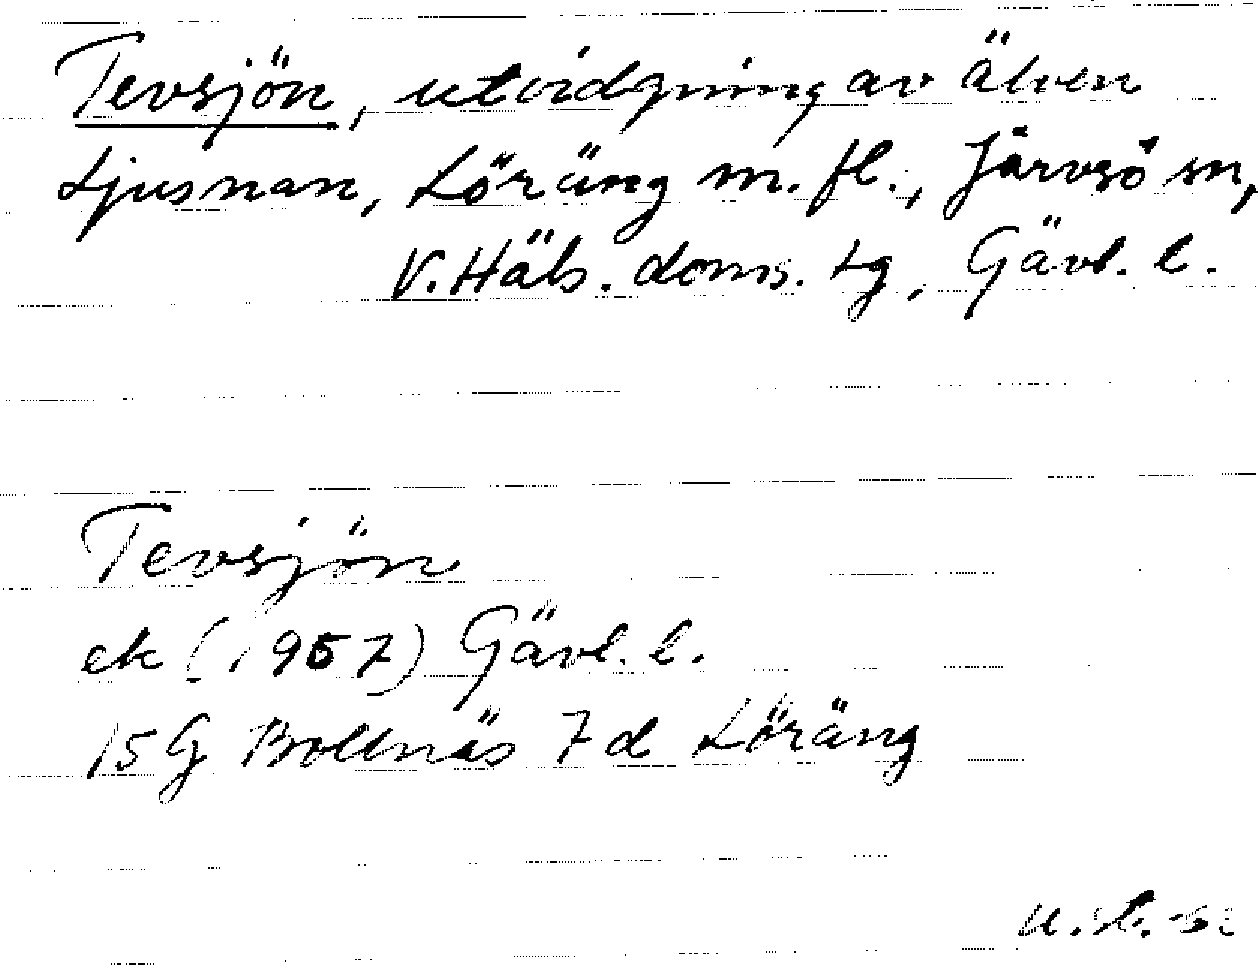 Tevsjön, utvidgning av älven
Ljusnan, Löräng m. fl., Järvsö sn,
V. Häls. doms. tg, Gävl. l.
Tevsjön
ek (1957) Gävl. l.
15G Bollnäs 7d Löräng